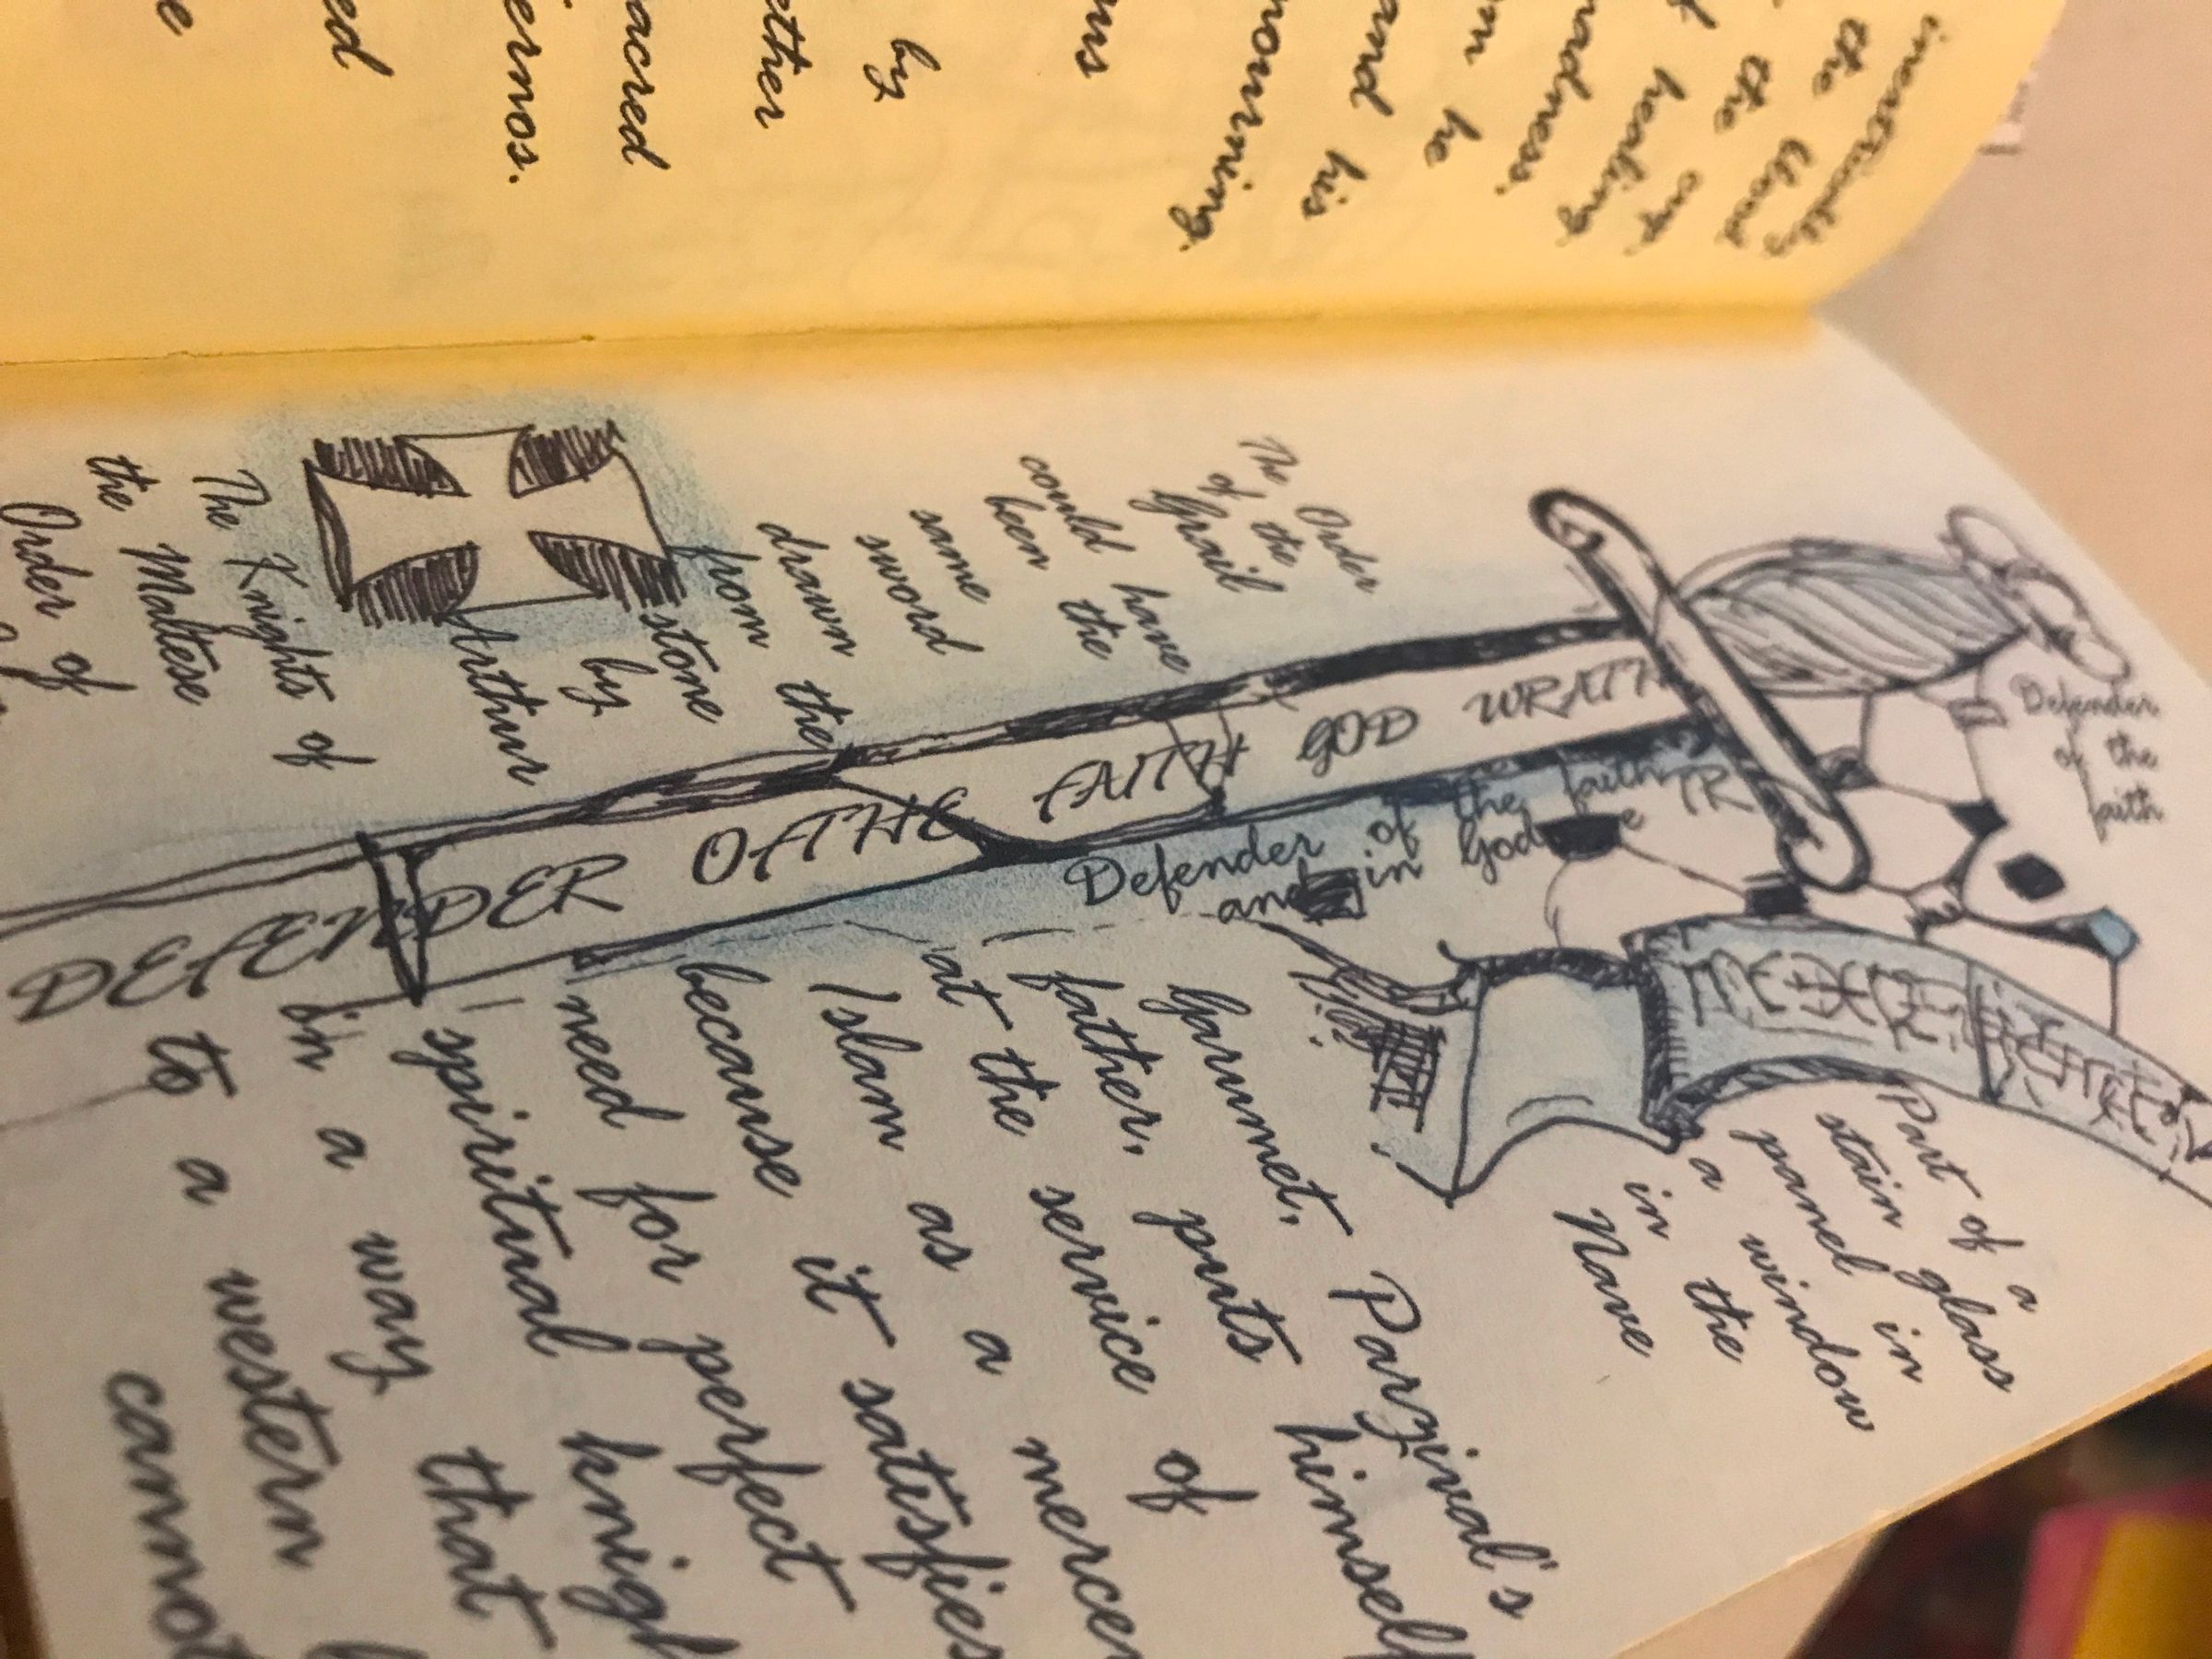 the blood
the cup.
f healing
adness.
m he
and his
mourning.
ms
by
ether
acred
ernos.
ed
e
Defender
of the
faith
DEFENDER OF THE FAITH GOD WRATH
Defender of the faith
and in God
The Order
of the
Grail
could have
been the
same
sword
drawn
from the
stone
by
Arthur
The Knights of
the Maltese
Order of
Part of a
stain glass
panel in
a window
in the
Nave
Garumet, Parzival's
father, puts himself
at the service of
Islam as a mercen
because it satisfies
need for perfect
spiritual knigh
in a way that
to a western
cannot